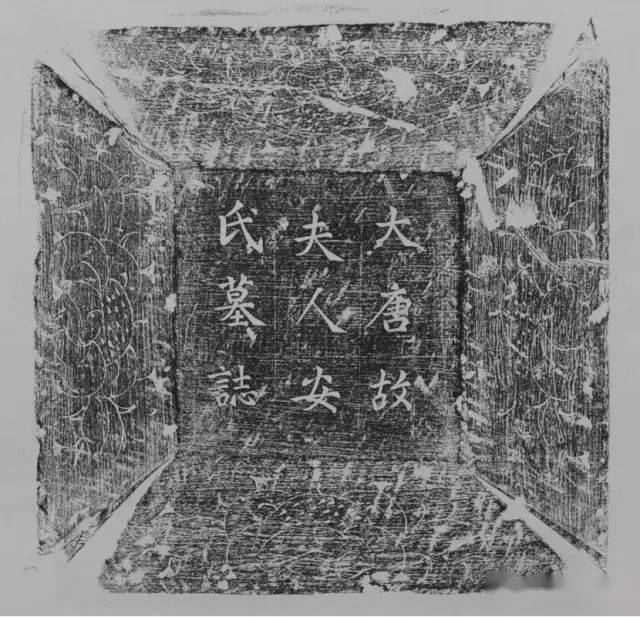 大唐故
夫人安
氏墓誌